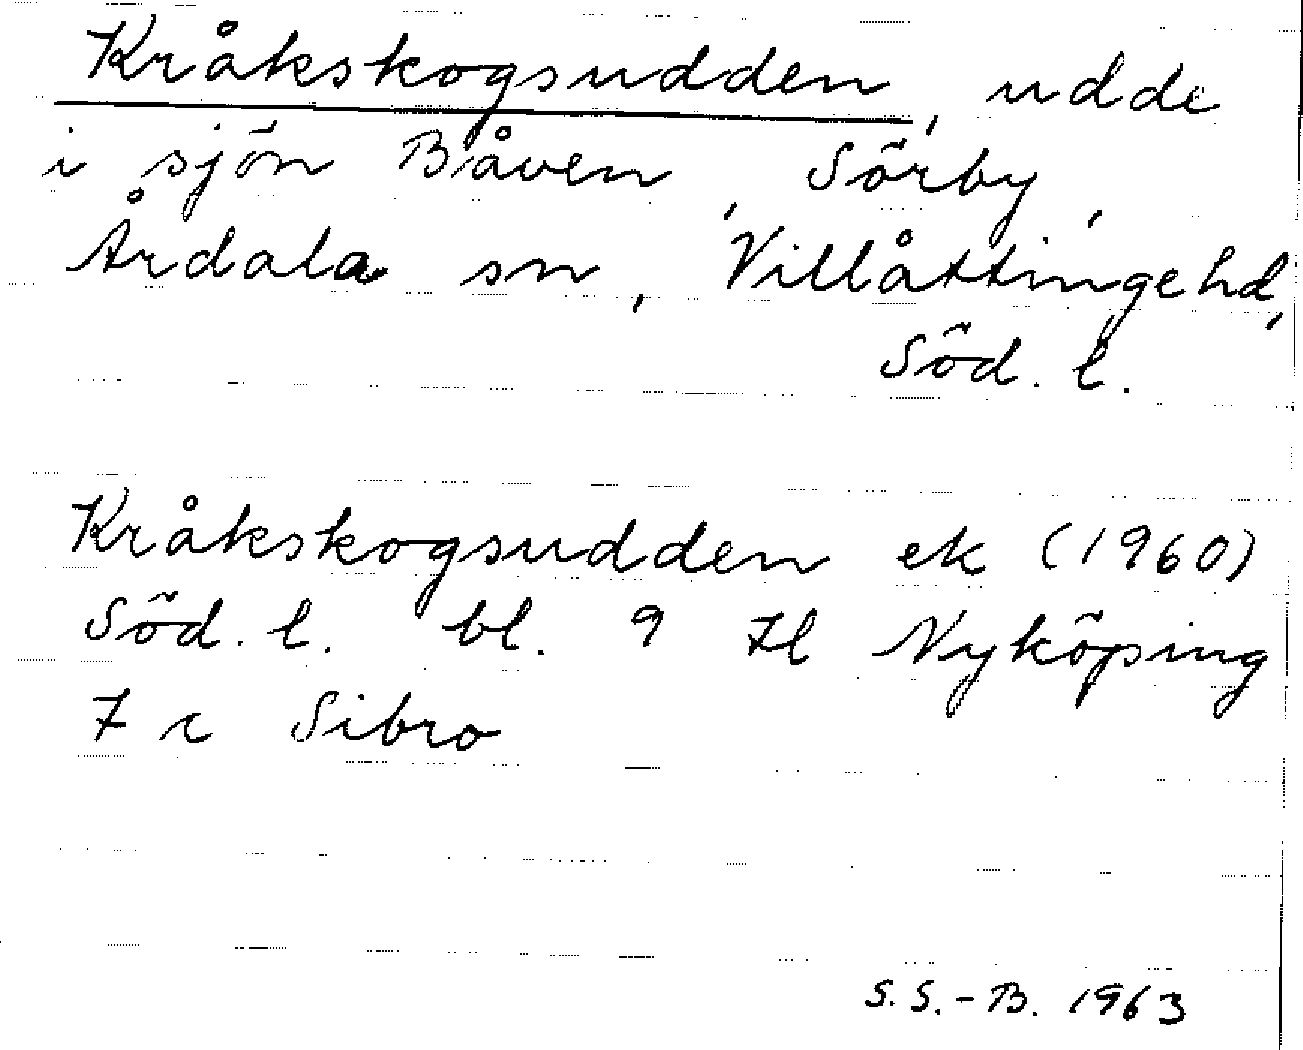 Kråkskogsudden, udde
i sjön Båven, Sörby,
Årdala sn, Villåttingehd,
Söd. l.
Kråkskogsudden ek (1960)
Söd. l. bl. 9 H Nyköping
7 c Sibro
S. S.-B. 1963